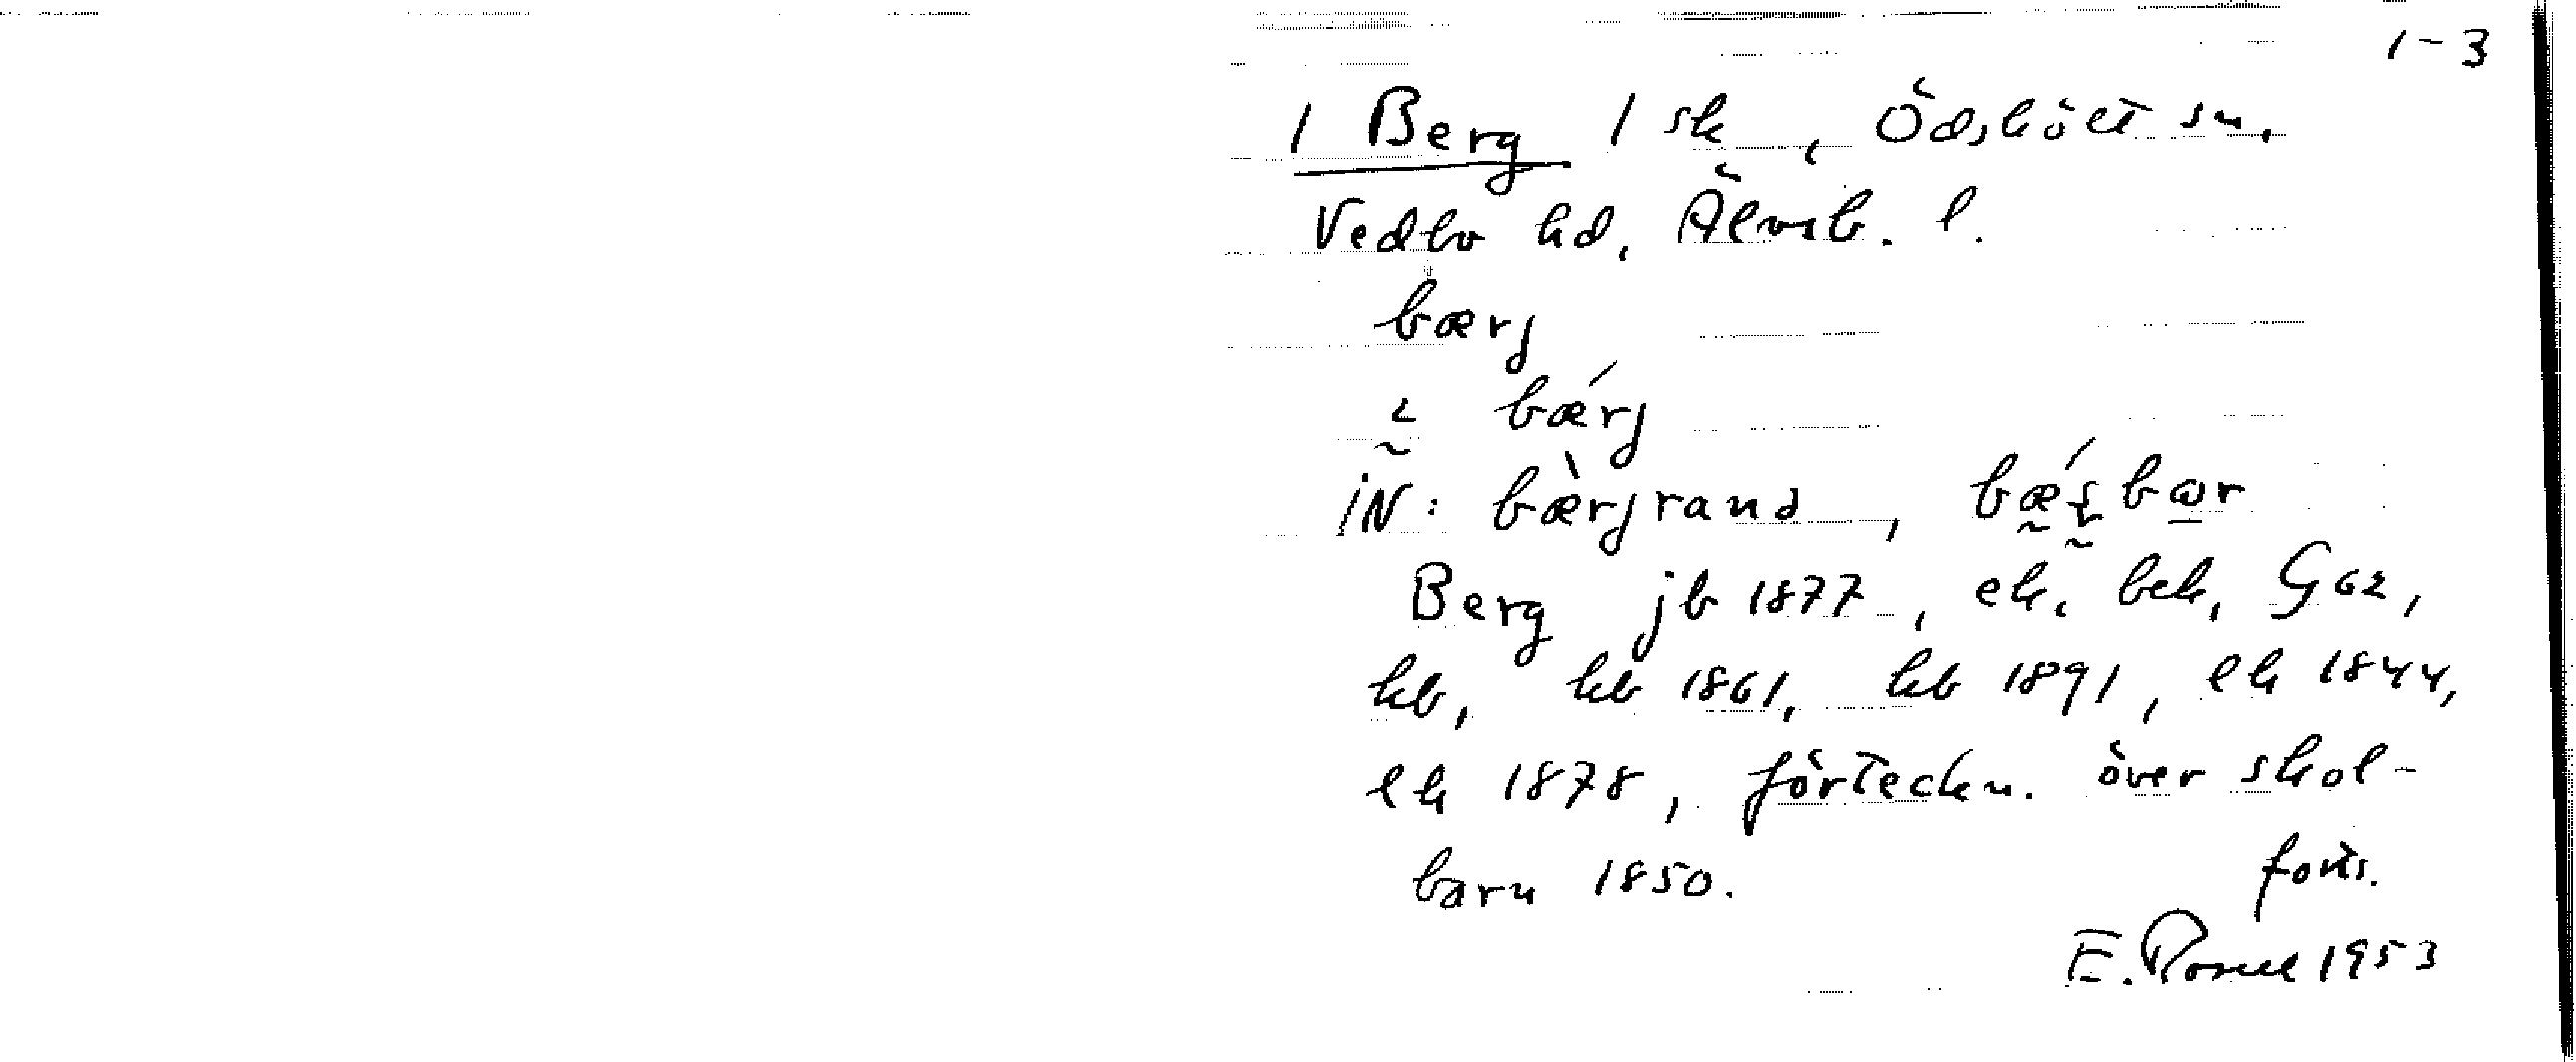 1-3
1 Berg 1 sk, Ödsköლt sn.
Vedbo hd, Älvsb. l.
bærj
i bǽrj
iN: bæ̀rjrand, bǽrbar
Berg jb 1877, ek. bek. G 62,
kb, kb 1861, kb 1891, lk 1844,
lk 1878, förteckn. över skol-
barn 1850. forts.
E. Rosell 1953